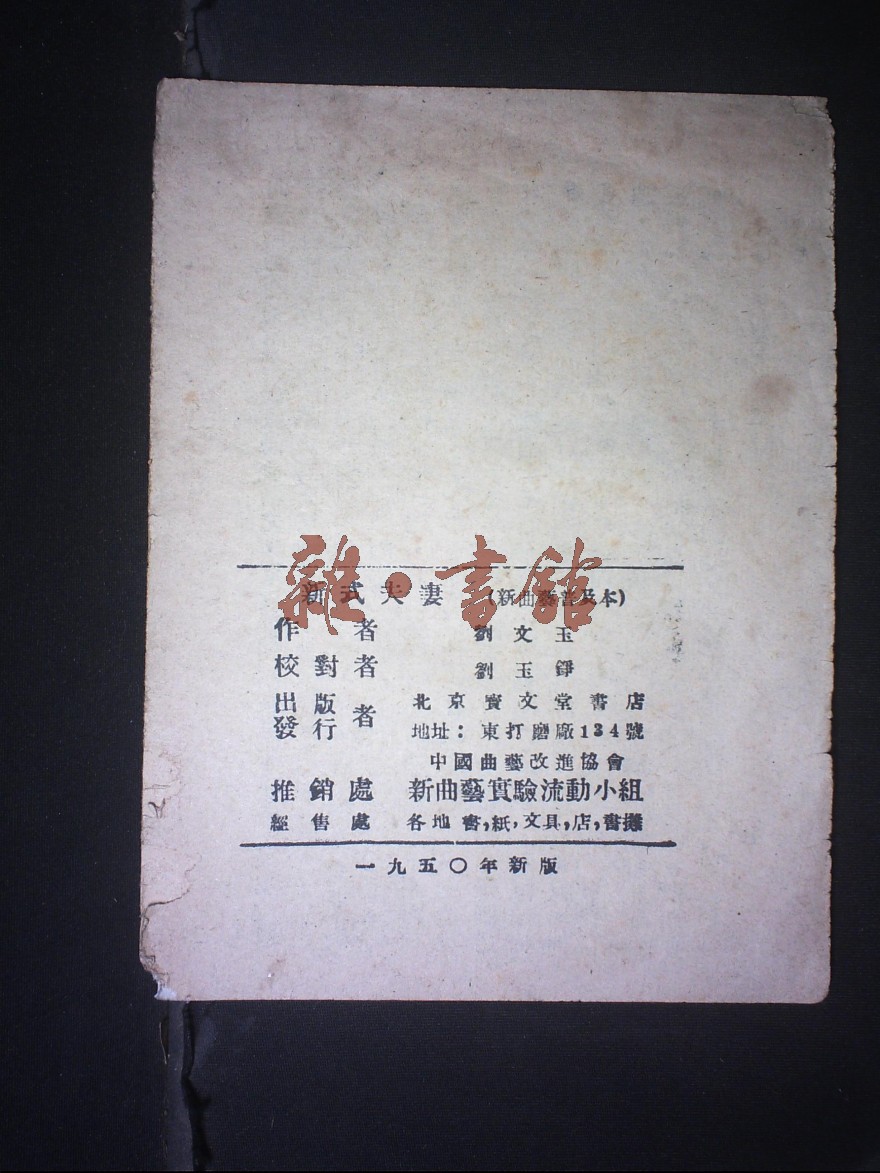 雜·書館
新式夫妻 (新曲藝普及本)
作者 劉文玉
校對者 劉玉錚
出版發行者 北京寳文堂書店
地址：東打磨廠134號
中國曲藝改進協會
推銷處 新曲藝實驗流動小組
經售處 各地書,紙,文具,店,書攤
一九五〇年新版